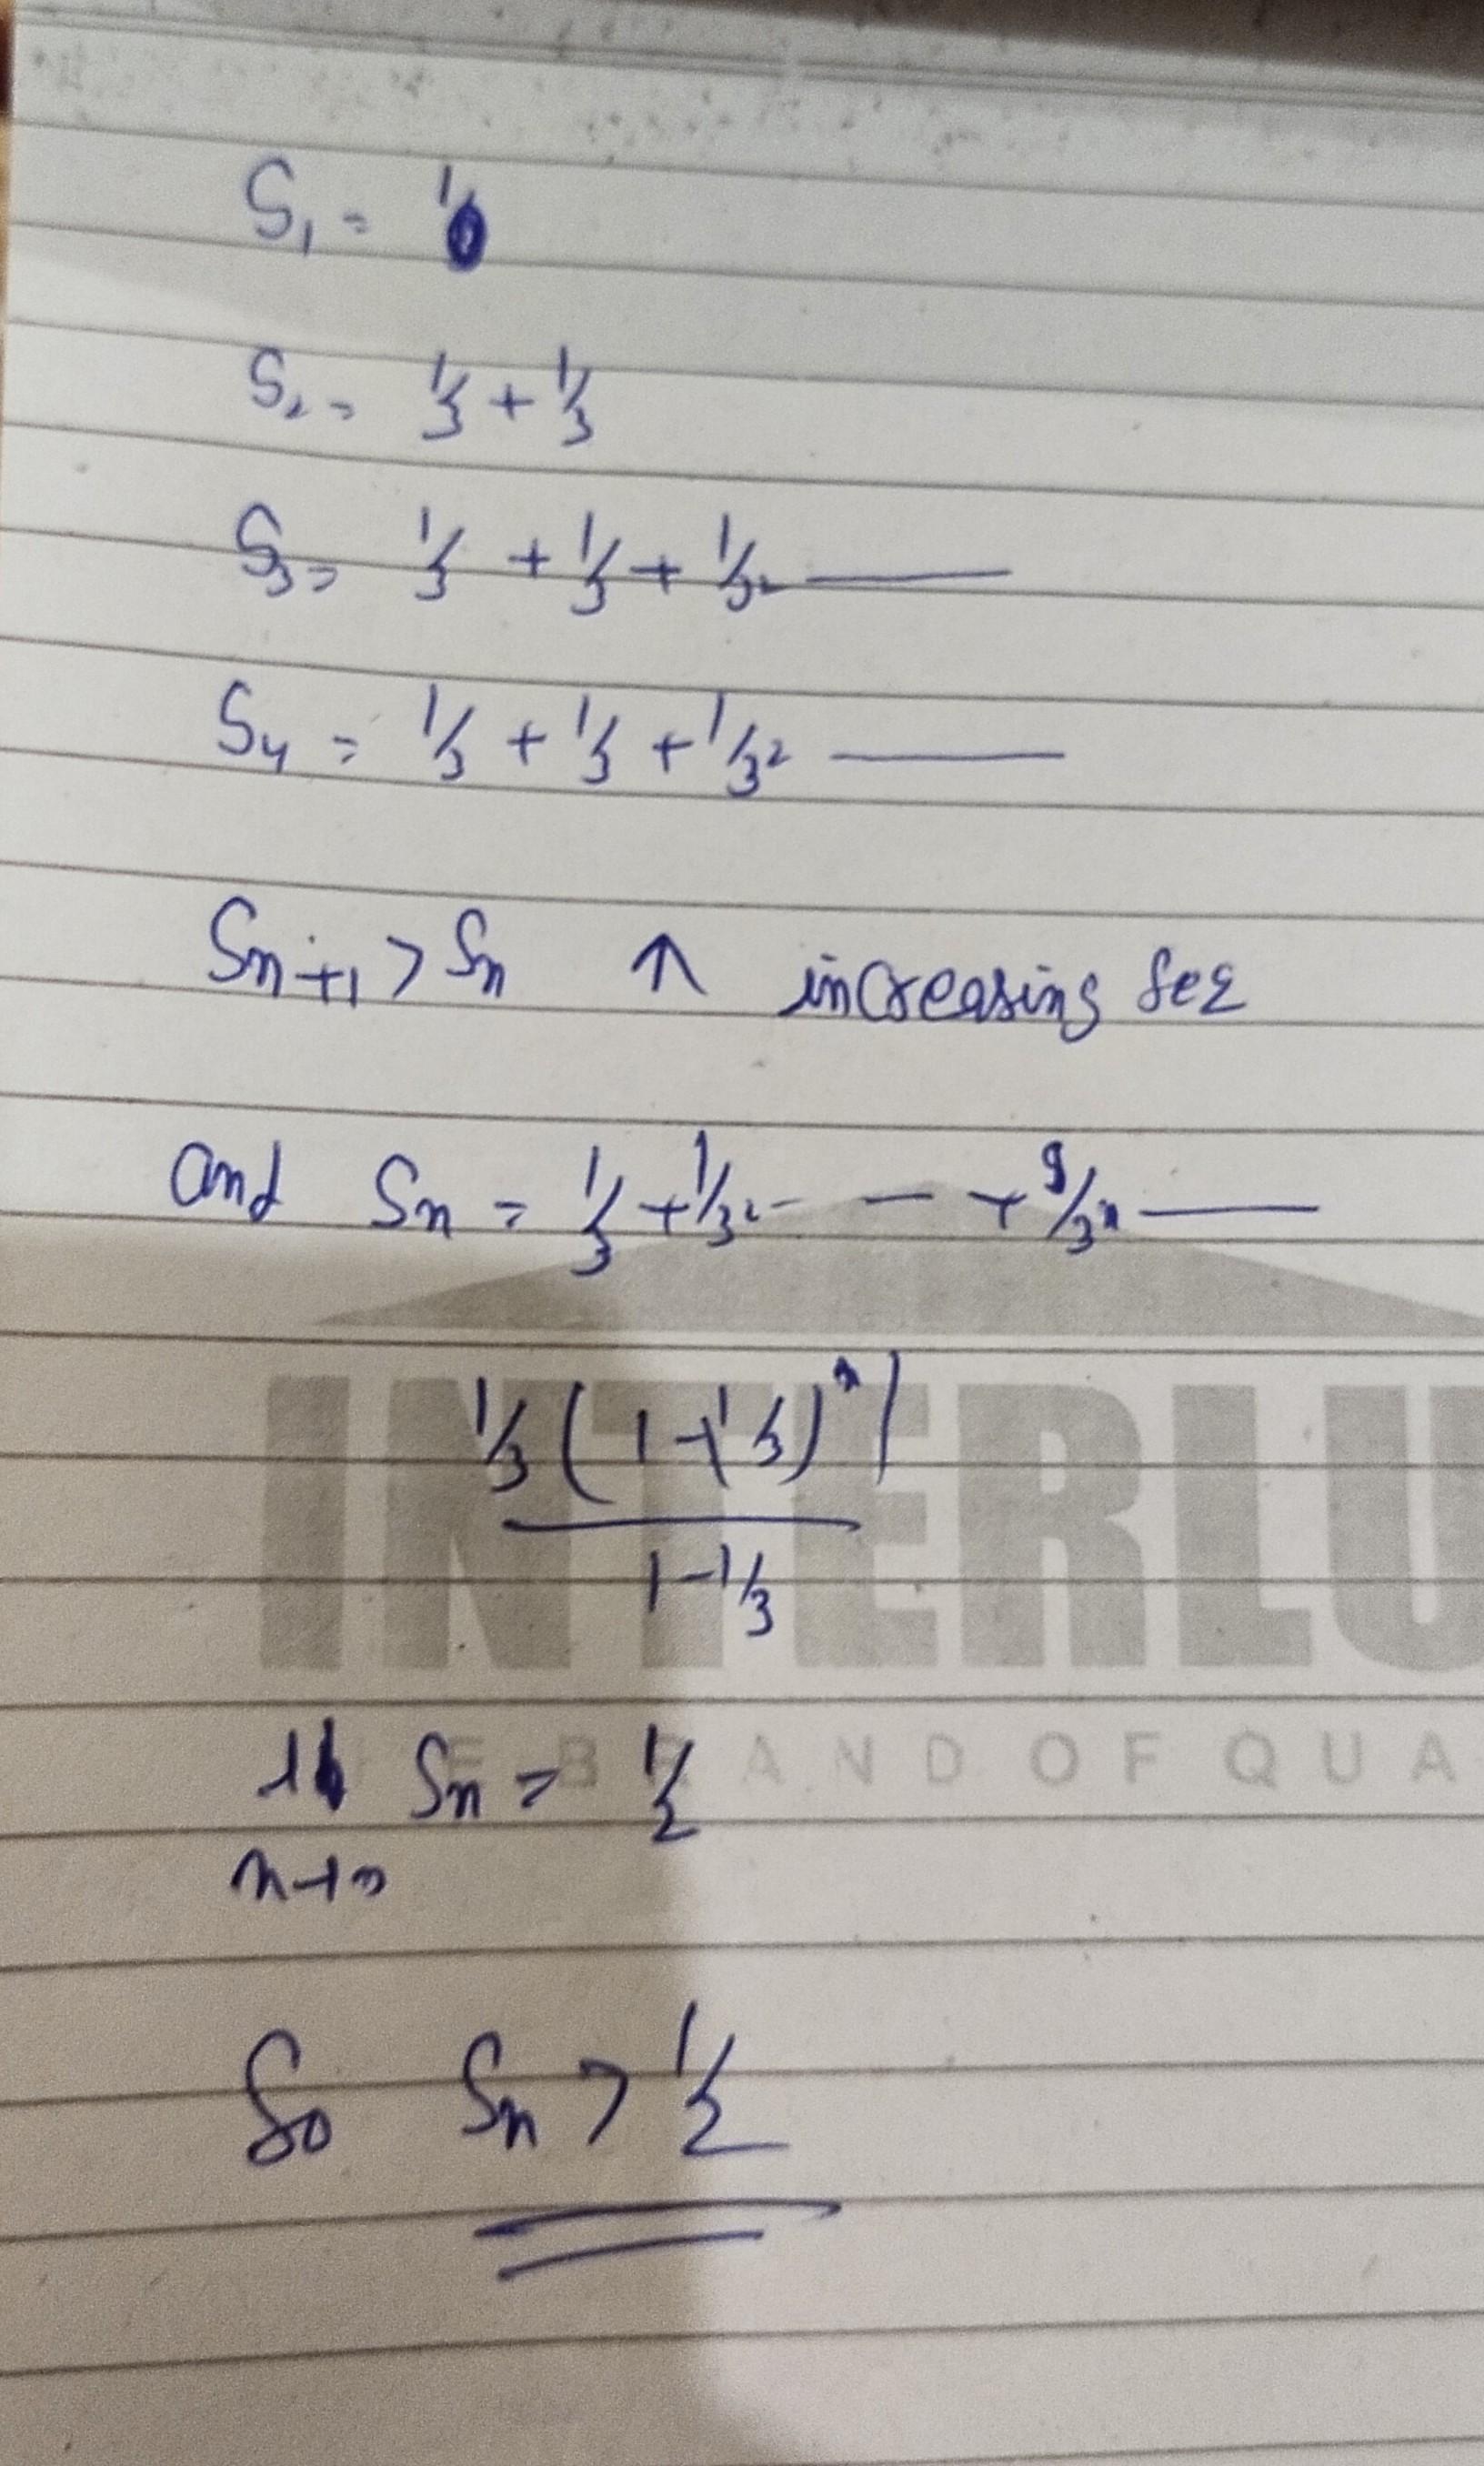 S₁ = 1/
S₂ = 1/3 + 1/3
S₃ = 1/3 + 1/3 + 1/3² ———
S₄ = 1/3 + 1/3 + 1/3² ———
Sn+1 > Sn ↑ increasing seq
and Sn = 1/3 + 1/3² - - + /3ⁿ ———
1/3 (1 - 1/3)ⁿ |
1 - 1/3
INTERLU
BRAND OF QUA
Sn = 1/2
n→∞
So Sn > 1/2